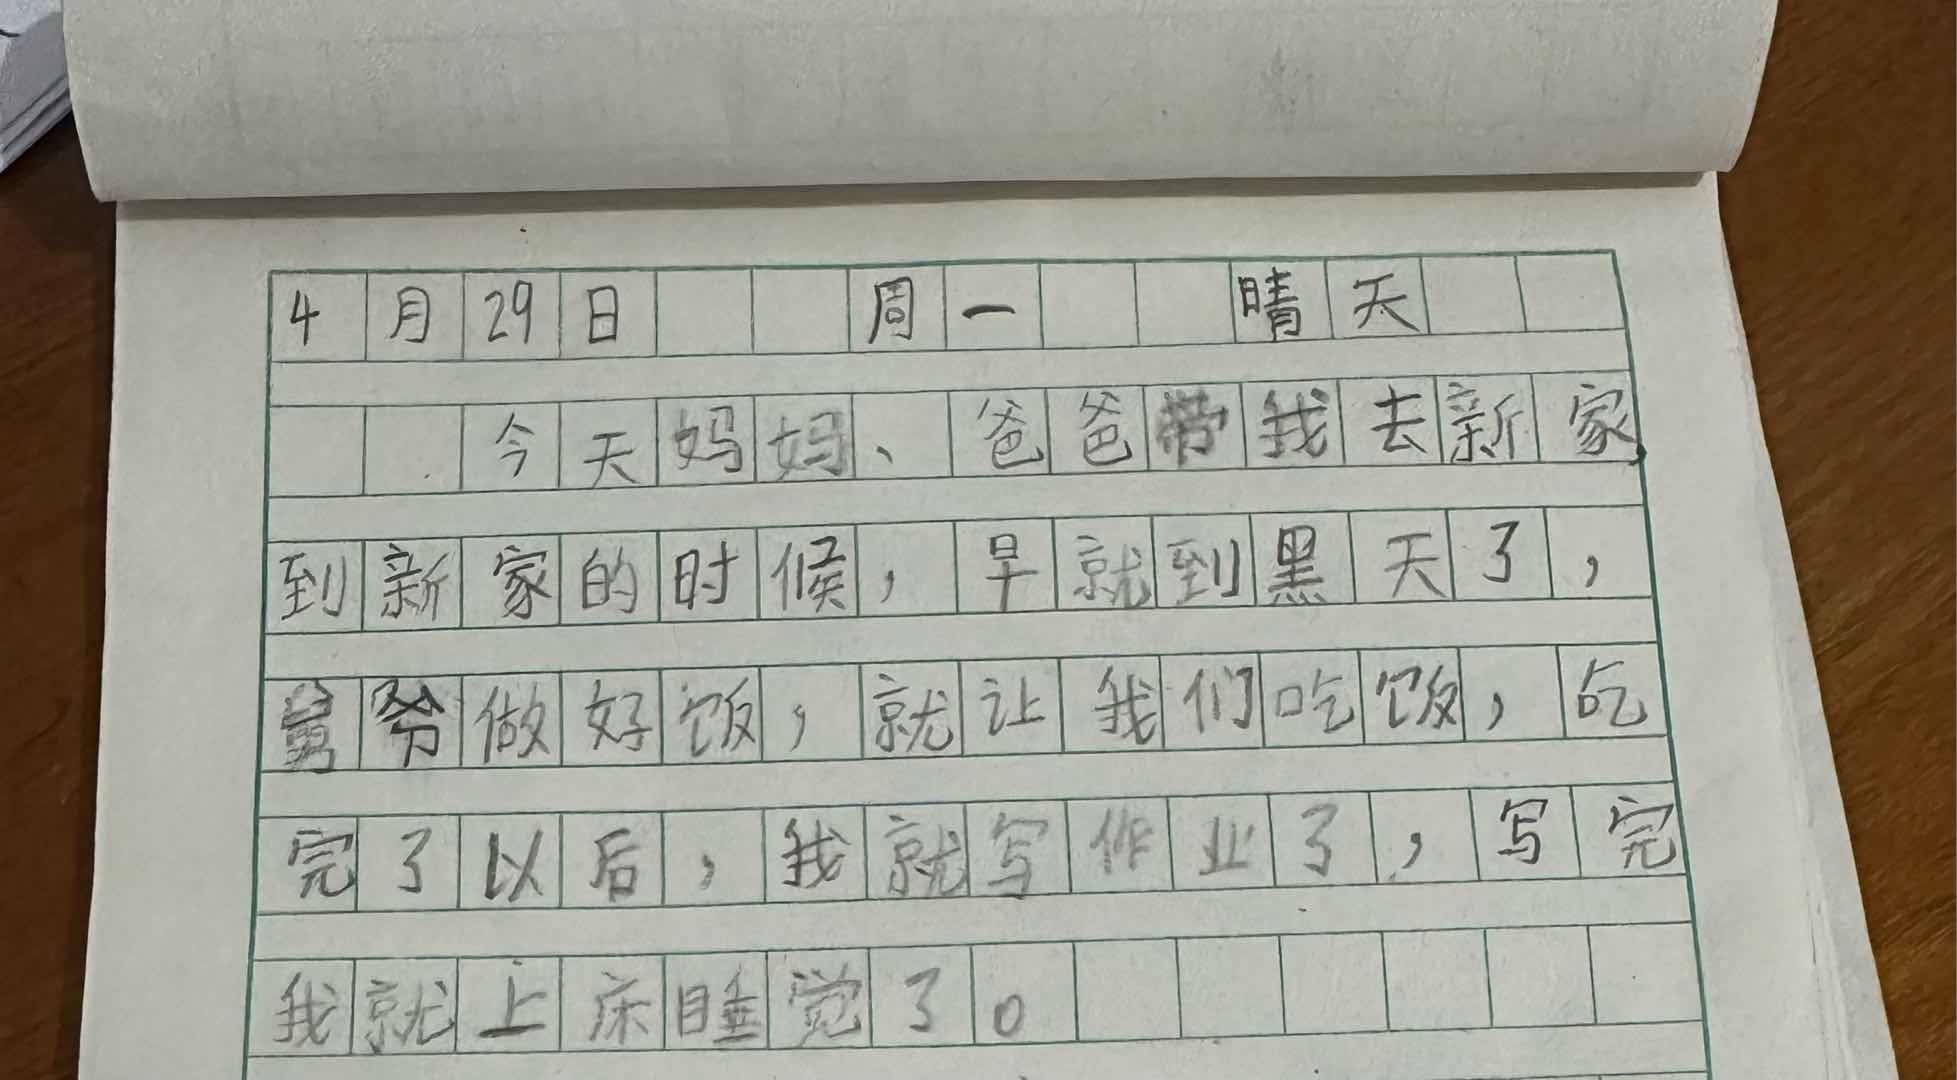 4月29日 周一 晴天
今天妈妈、爸爸带我去新家,
到新家的时候，早就到黑天了，
爷做好饭，就让我们吃饭，吃
完了以后，我就写作业了，写完
我就上床睡觉了。